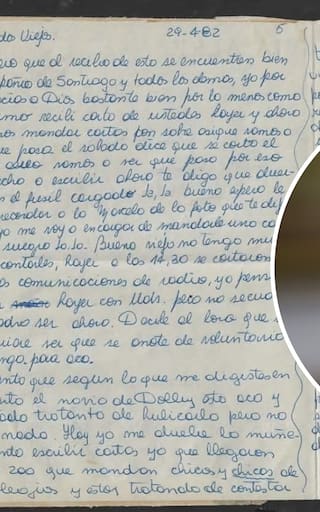 do Viejo. 29-4-82 5
ero que al recibo de esto se encuentren bien
de Santiago y todos los demas, yo por
acias a Dios bastante bien por lo menos como
imo recibi carta de ustedes Hayer y ahora
os mandar cartas por sobre asique vamos a
ue pasa el sabado dice que se corto el
aereo vamos a ver que pasa por eso
cho a escribir ahora te digo que duer-
el fusil cargado Ja, Ja bueno espero le
recordar a la Marcela de la foto que te
yo me voy a encargar de mandarle una ca
suegra Ja Ja. Bueno viejo no tengo mu
contarles, Hayer a las 14,30 se cortaron
as comunicaciones de radio, yo pens
Hayer con Uds. pero no se cua
odra ser ahora. Decile al loro que
uiere ser que se anote de voluntario
nga para aca.
ento que segun lo que me digistes en
nto el novio de Dolly esta aca y
ado tratando de hubicarlo pero no
nada. Hoy ya me duele la muñe-
nto escribir cartas ya que llegaron
200 que mandan chicos y chicas de
legios y estoy tratando de contestar